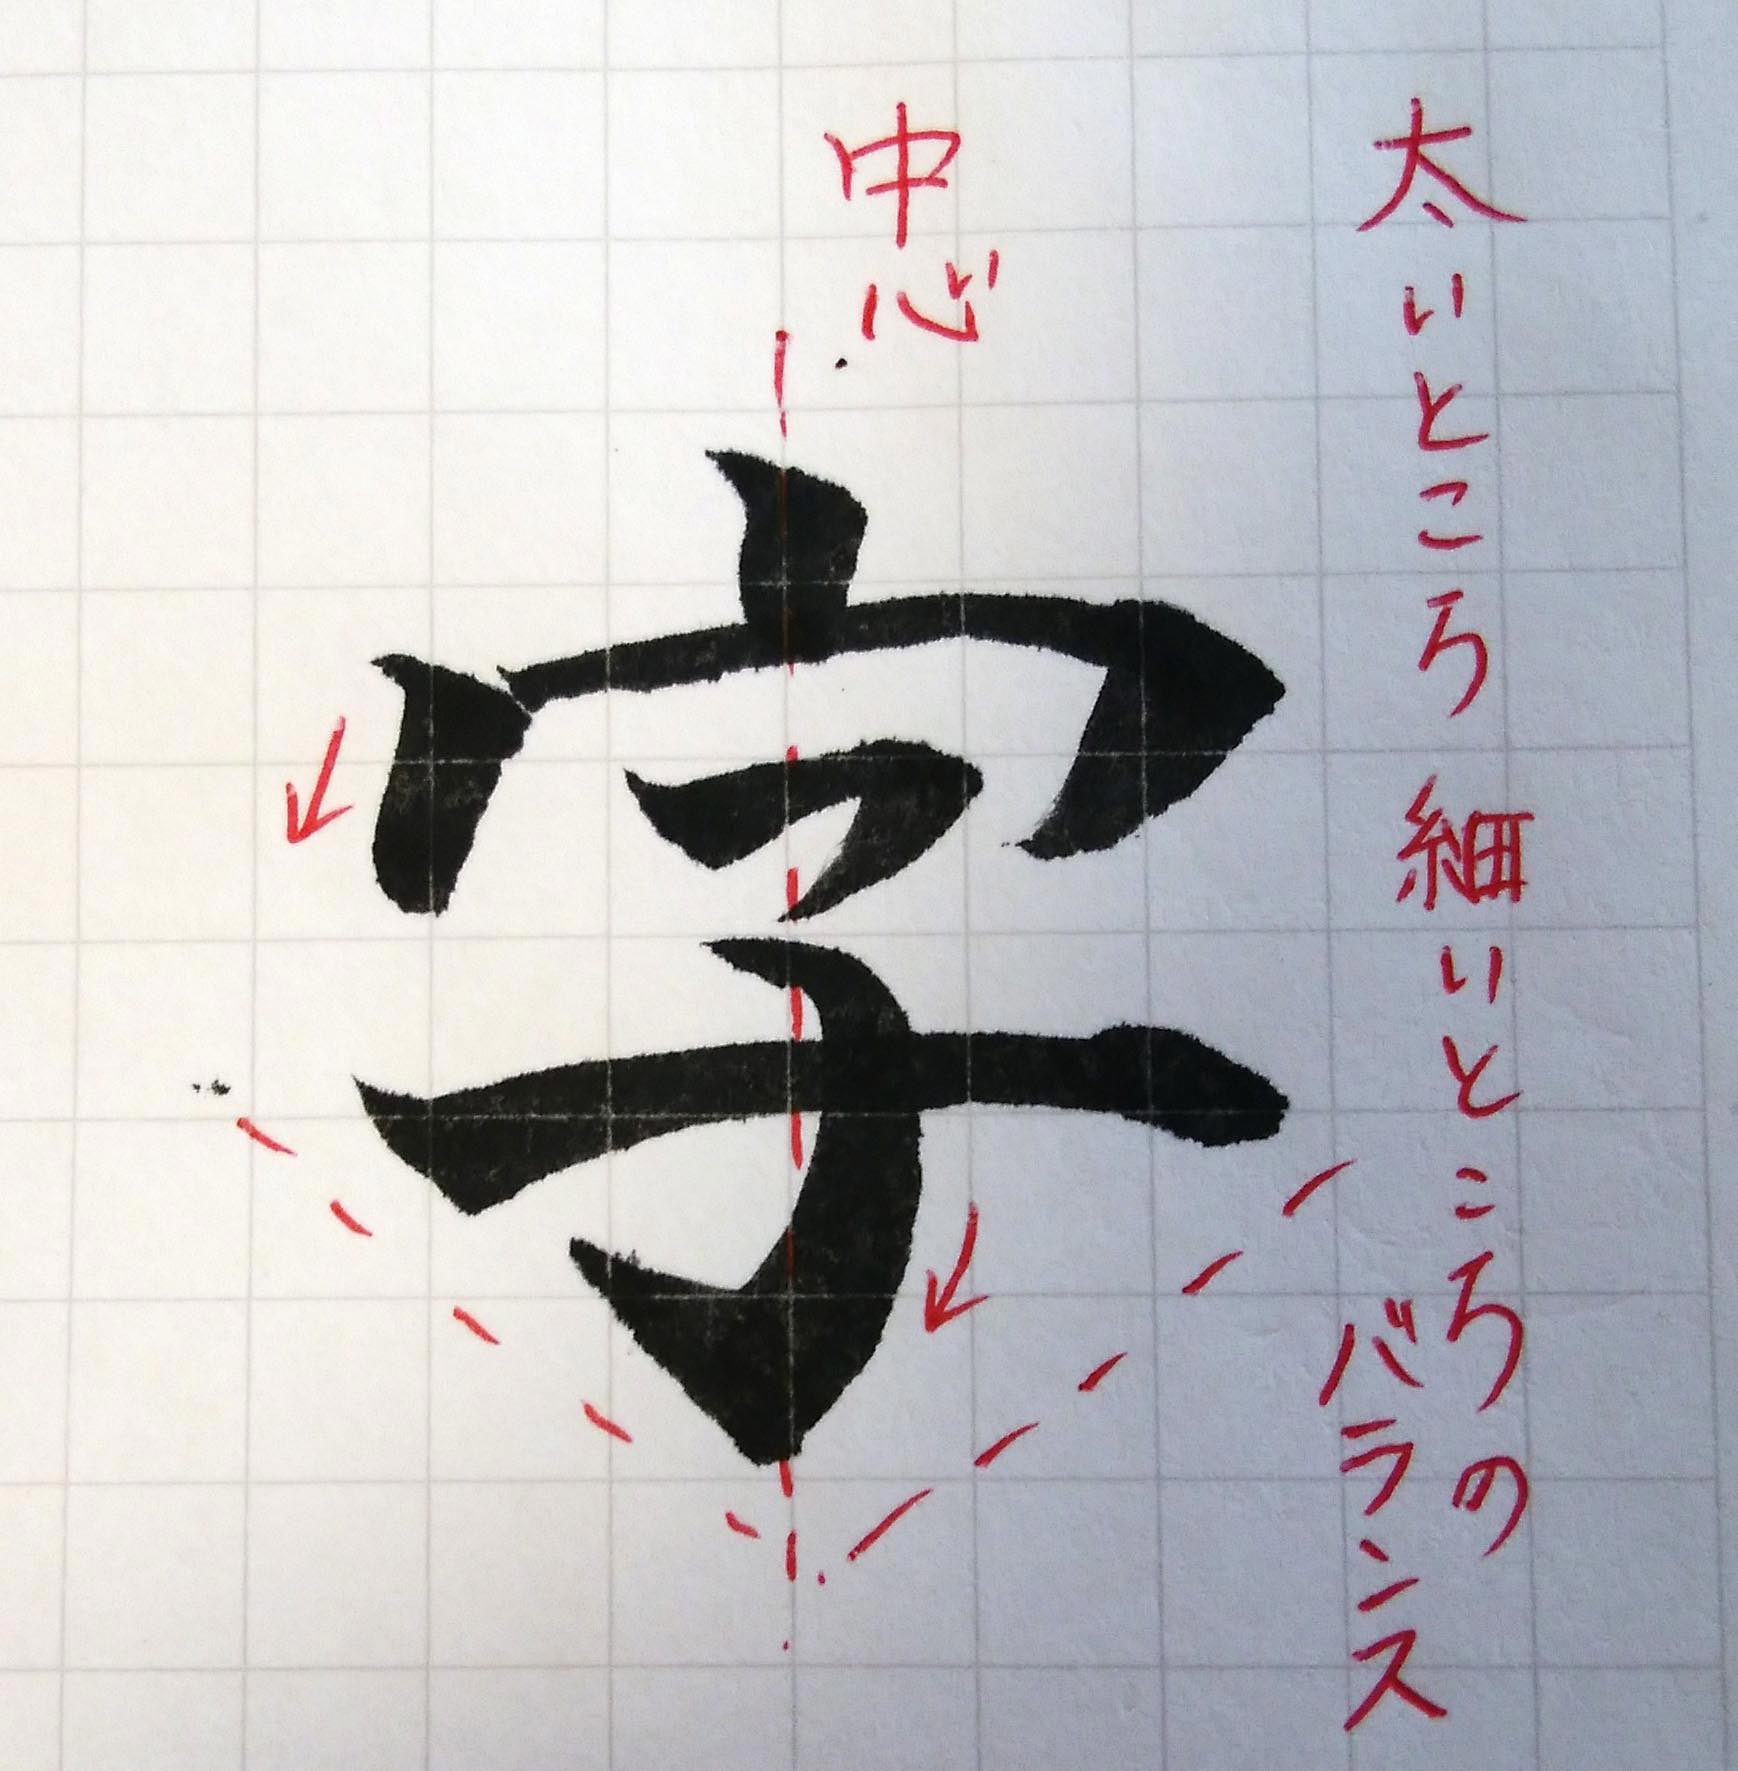 太いところ細いところの
バランス
中心
字